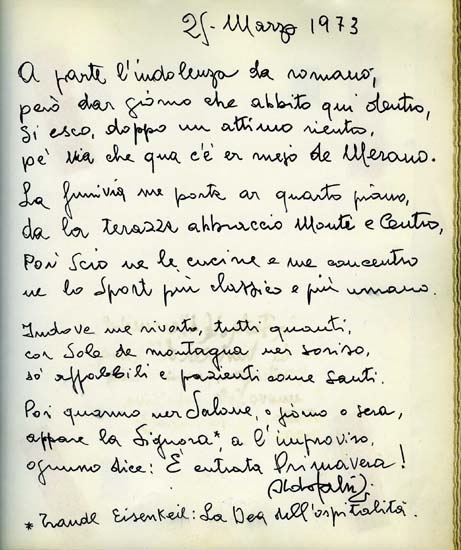 25 - Marzo 1973
A parte l'indolenza da romano,
però dar giorno che abbito qui dentro,
Si esco, doppo un attimo rientro,
pe' via che qua c'è er mejo de Merano.
La funivia me porta ar quarto piano,
da la terazza abbraccio Monte e Centro,
Poi Scio ne le cucine e me concentro
ne lo Sport più classico e più umano.
Indove me rivorto, tutti quanti,
cor Sole de montagna ner soriso,
so' affabbili e pazienti come Santi.
Poi quanno ner Salone, o giorno o sera,
appare la Signora*, a l'improviso,
ognuno dice: È entrata Primavera!
Aldo Fabrizi
* Traudl Eisenkeil: La Dea dell'ospitalità.